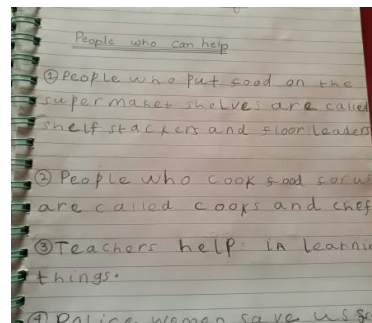 People who can help
① People who put food on the
supermaket shelves are called
shelf stackers and floor leaders
② People who cook food for us
are called cooks and chef
③ Teachers help in learnin
things.
④ Police women save us